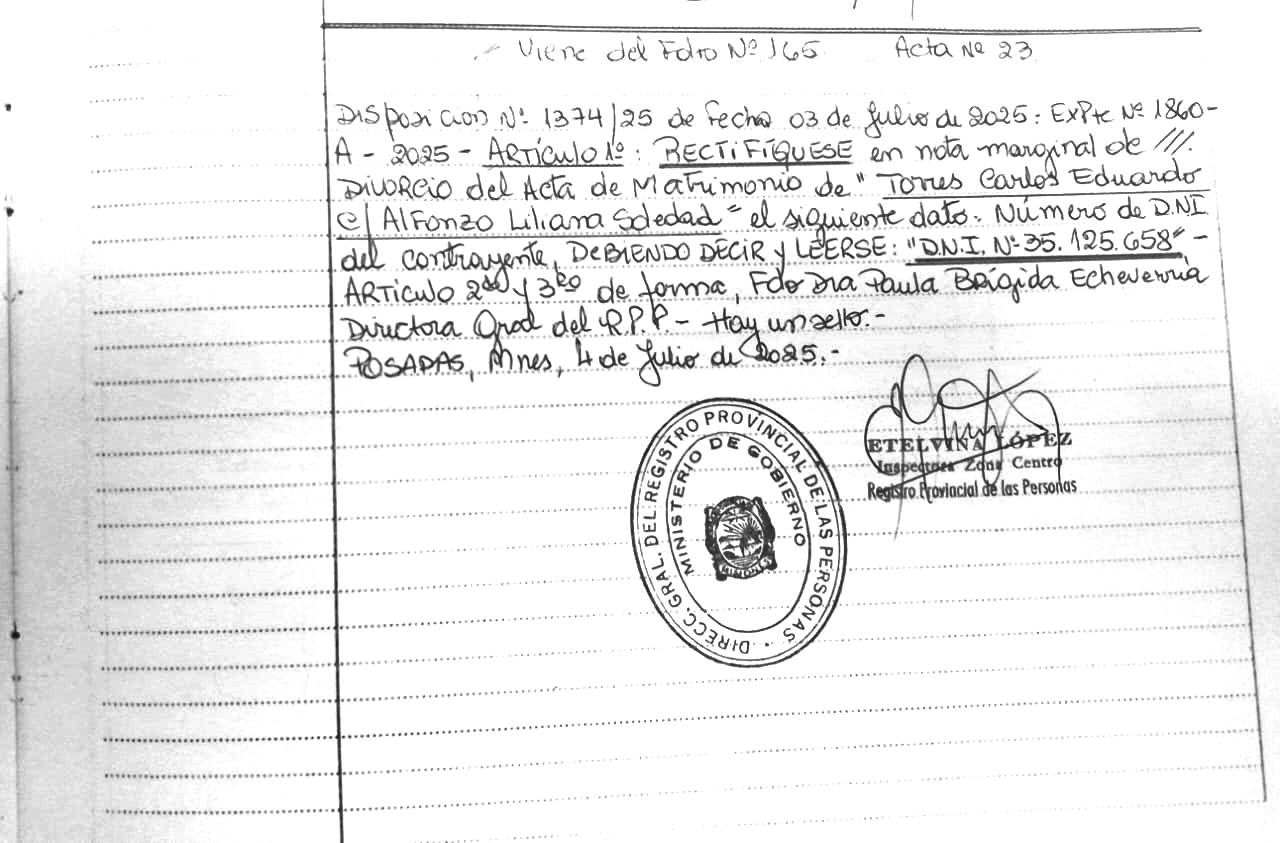 Viene del Folio Nº 165 Acta Nº 23
Disposicion Nº 1374/25 de fecha 03 de Julio de 2025: ExPte Nº 1860-
A - 2025 - ARTÍCULO 1º: RECTIFÍQUESE en nota marginal de ///.
DIVORCIO del Acta de Matrimonio de "Torres Carlos Eduardo
c/ Alfonzo Liliana Soledad" el siguiente dato: Número de D.N.I.
del contrayente, DEBIENDO DECIR y LEERSE: "D.N.I. Nº 35.125.658" -
ARTICULO 2do y 3ro de forma, Fdo Dra Paula Brígida Echeverria
Directora Gral del R.P.P. - Hay un sello.-
POSADAS, Mnes, 4 de Julio de 2025.-
ETELVINA LÓPEZ
Inspectora Zona Centro
Registro Provincial de las Personas
DIRECC. GRAL. DEL REGISTRO PROVINCIAL DE LAS PERSONAS
MINISTERIO DE GOBIERNO
MISIONES